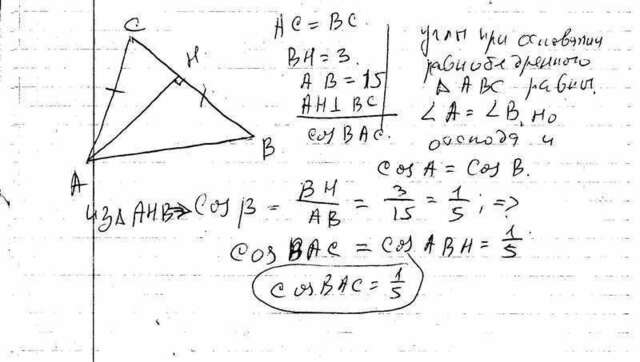 C
H
A
B
AC = BC.
BH = 3.
AB = 15
AH ⊥ BC
cos BAC.
углы при основании
равнобедренного
△ ABC равны.
∠A = ∠B, но
отсюда и
cos A = cos B.
из △ AHB => cos β = BH/AB = 3/15 = 1/5; =>
cos BAC = cos ABH = 1/5
cos BAC = 1/5